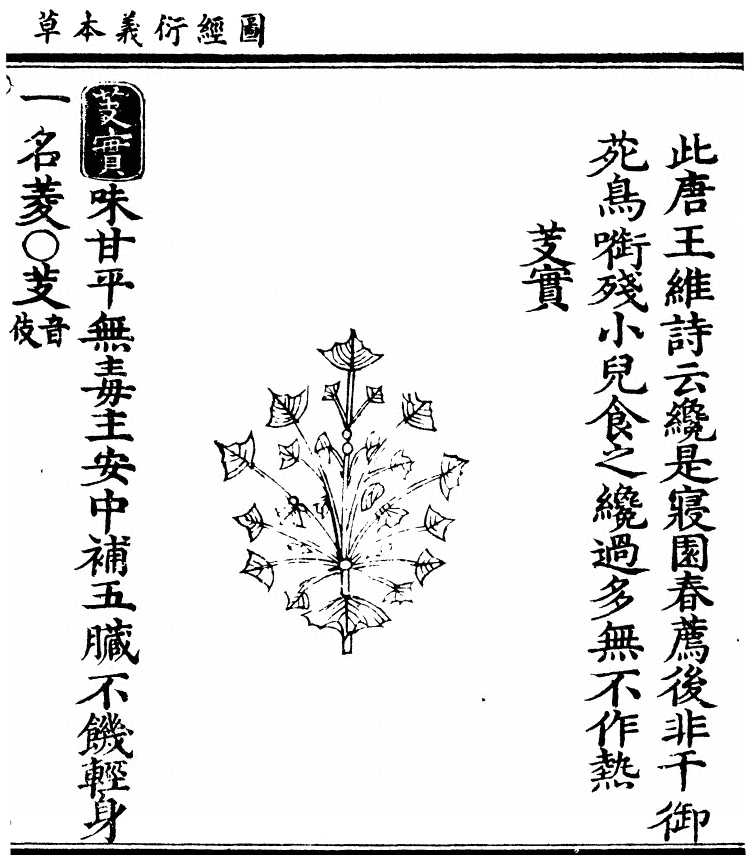 圖經衍義本草
此唐王維詩云纔是寢園春薦後非干御
苑鳥嘲殘小兒食之纔過多無不作熱
芰實
芰實味甘平無毒主安中補五臟不饑輕身
一名菱○芰音伎